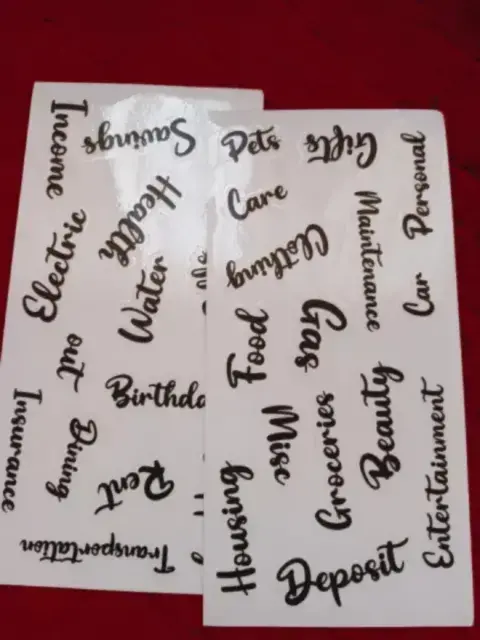 Income
Savings
Health
Electric
Water
out
Dining
Birthda
Insurance
Rent
Transportation
Pets
Gifts
Personal
Care
Maintenance
Clothing
Car
Gas
Food
Misc
Beauty
Groceries
Entertainment
Housing
Deposit